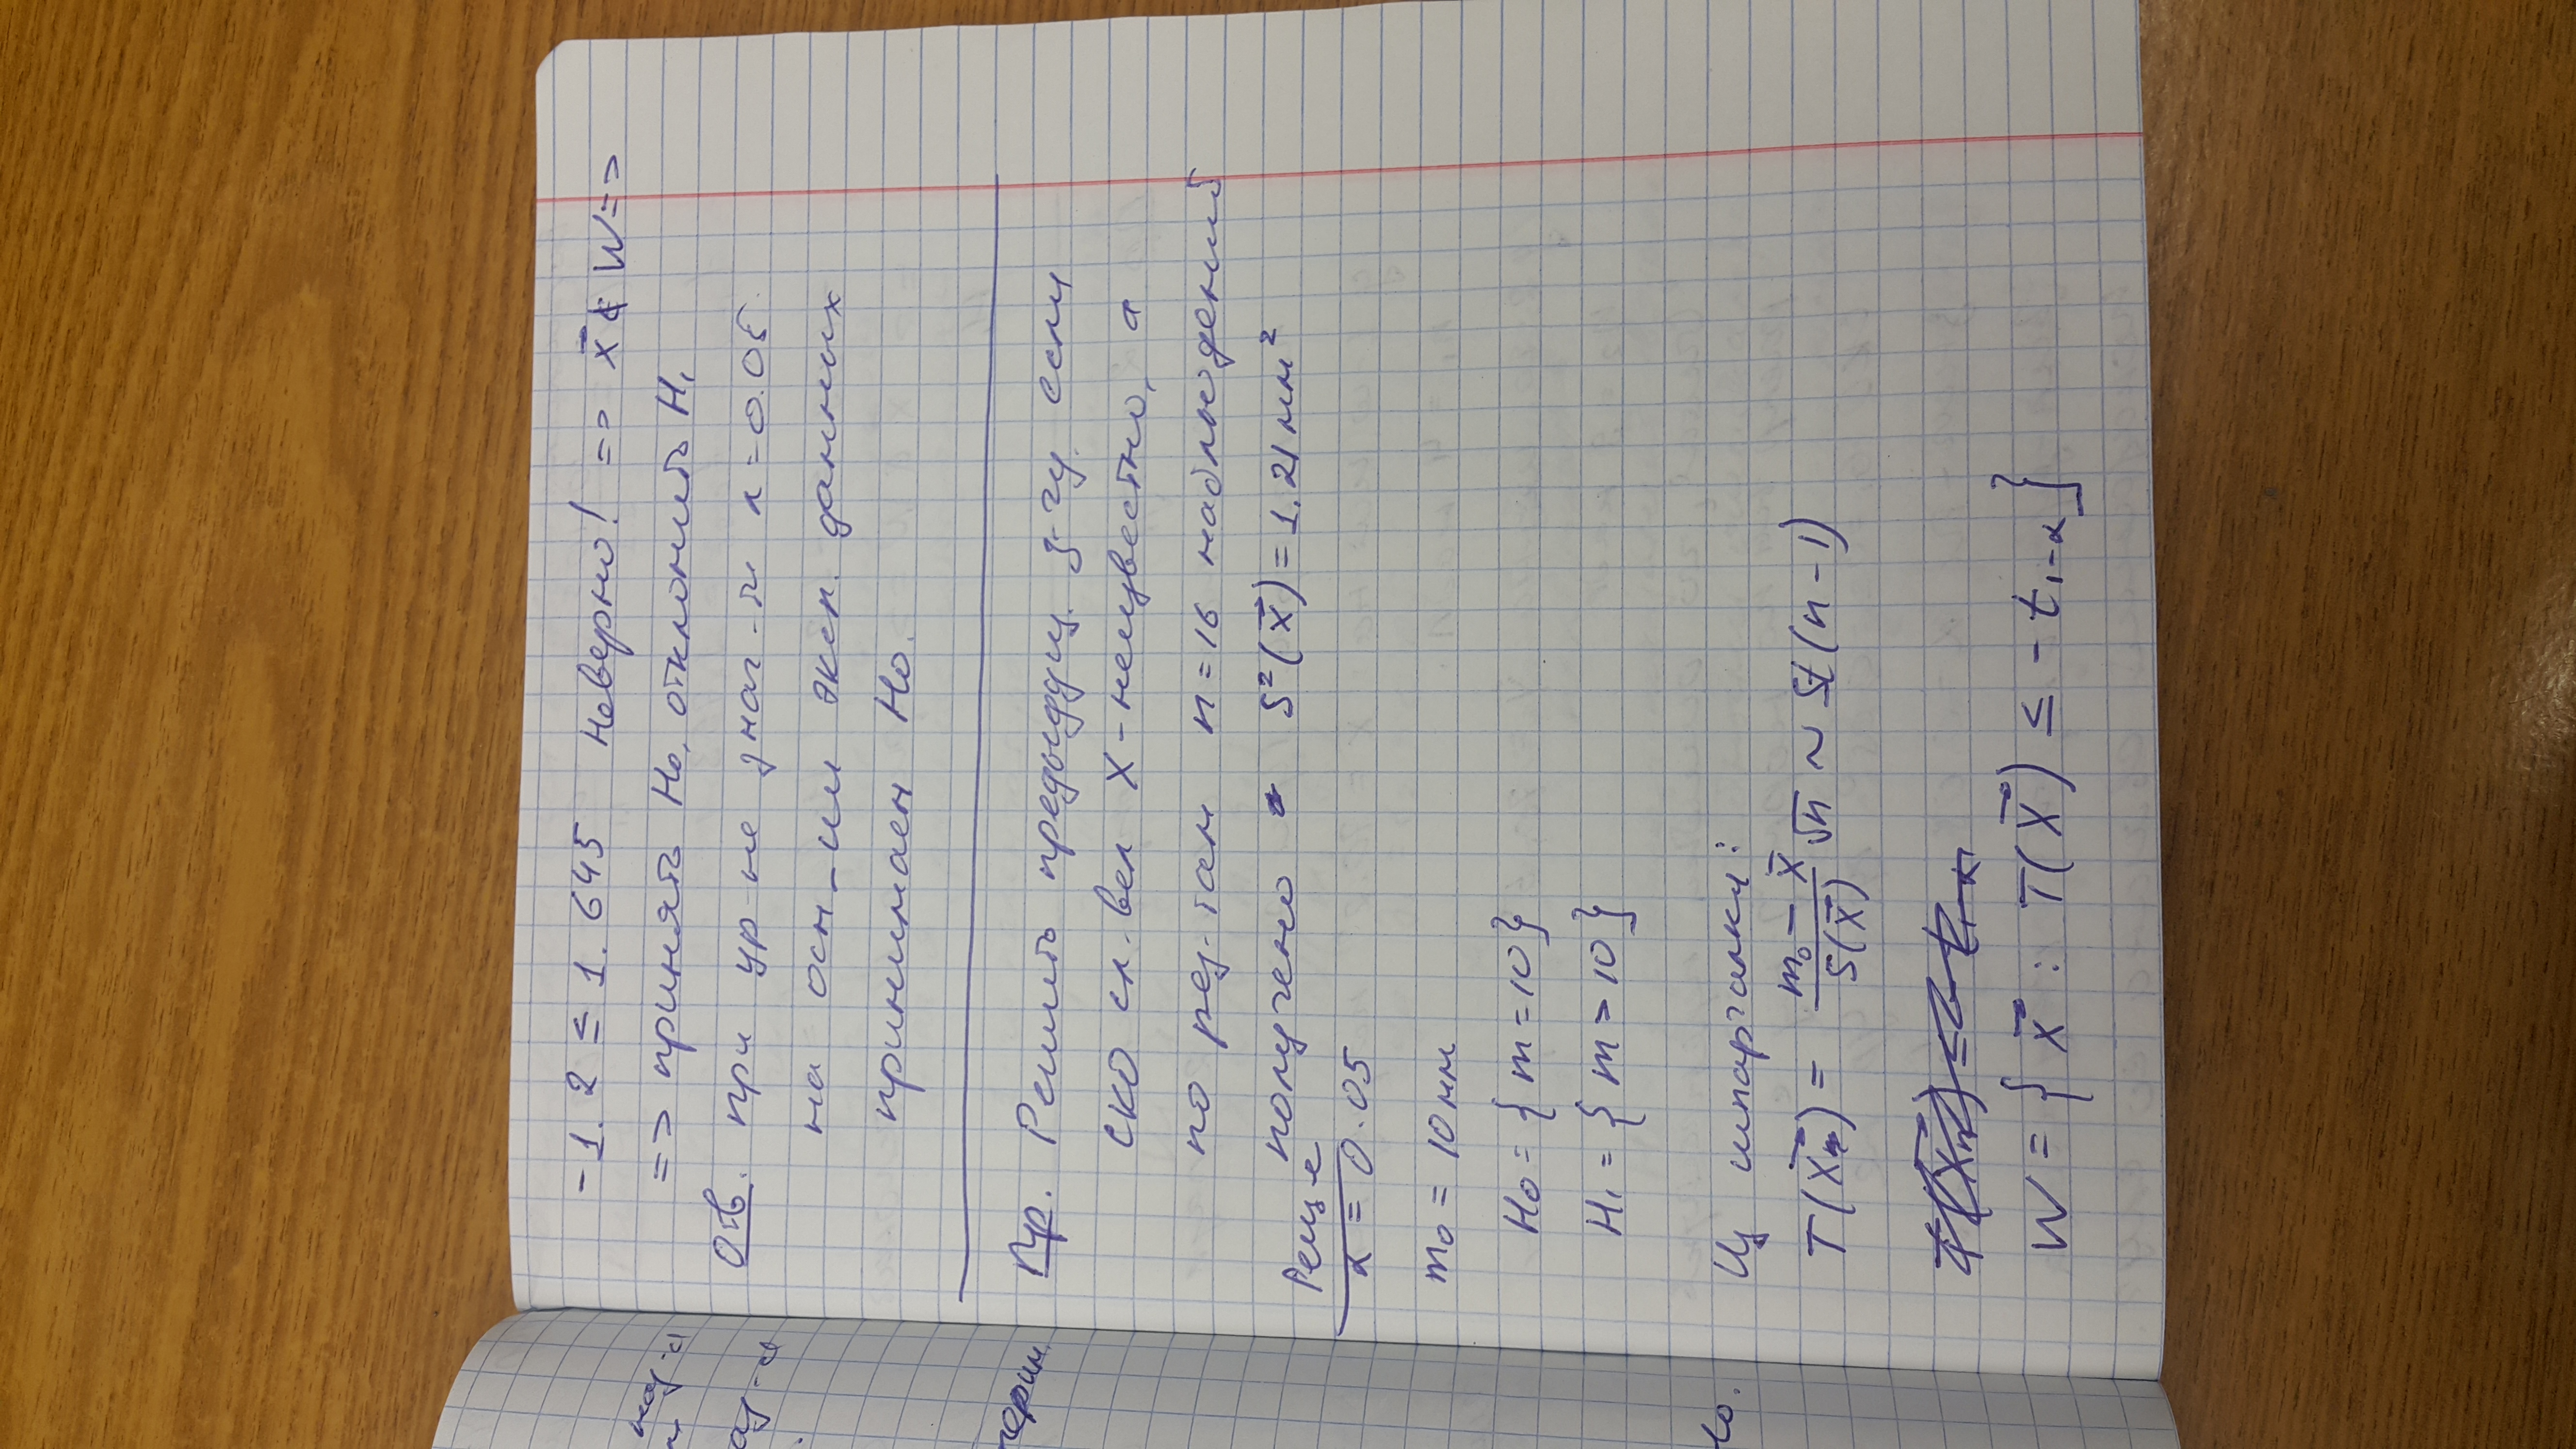 -1.2 ≤ 1.645 неверно! => x⃗ ∉ W =>
=> принять H₀, отклонить H₁
Отв. при ур-не знач-ти α = 0.05
на осн-ии эксп. данных
принимаем H₀.
Пр. Решить предыдущ. з-чу, если
СКО сл. вел X - неизвестно, а
по рез-там n = 16 наблюдений
получено S²(x⃗) = 1.21 мм²
Реше
α = 0.05
m₀ = 10 мм
H₀ = { m = 10 }
H₁ = { m > 10 }
Из шпаргалки:
T(X⃗ₙ) = (m₀ - X̄)/S(X⃗) √n ~ St(n-1)
W = { x⃗ : T(X⃗) ≤ -t₁₋α }
наз-а
аз-а
терин.
H₀.